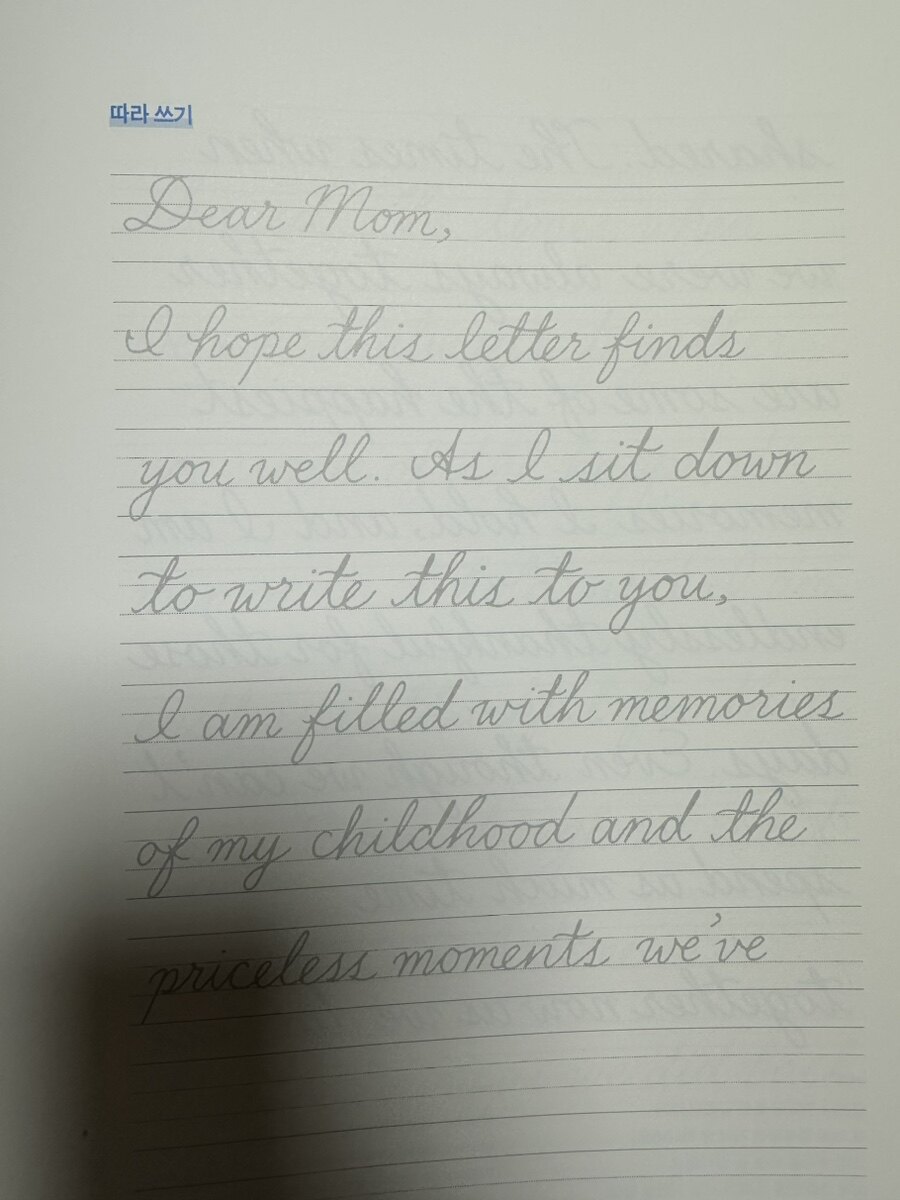 따라 쓰기
Dear Mom,
I hope this letter finds
you well. As I sit down
to write this to you,
I am filled with memories
of my childhood and the
priceless moments we've